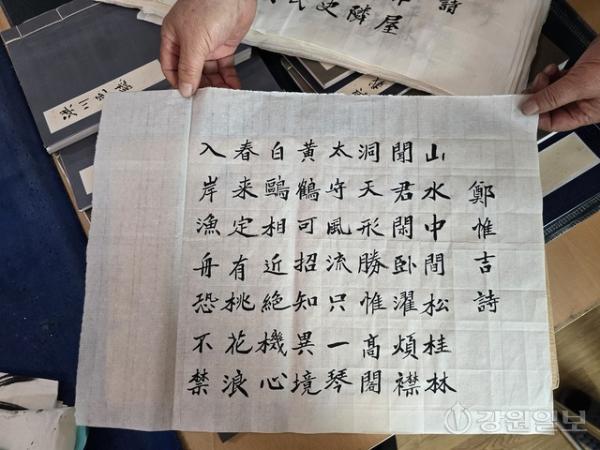 鄭惟吉詩
山水中間松桂林
聞君閑臥濯煩襟
洞天形勝惟高閣
太守風流只一琴
黃鶴可招知異境
白鷗相近絶機心
春来定有桃花浪
入岸漁舟恐不禁
詩
屋
강원일보